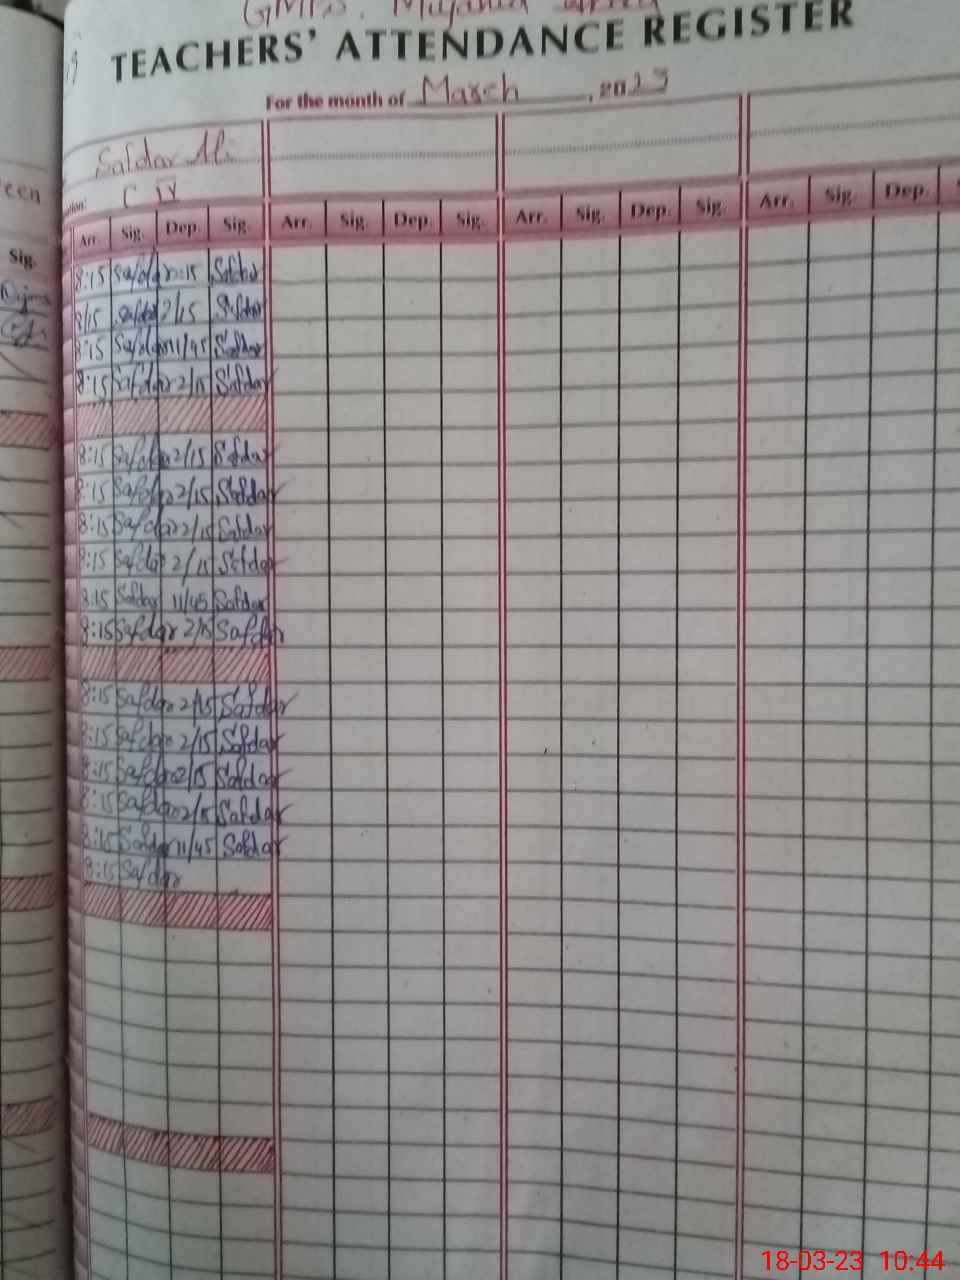 GMPS. Mujahid
TEACHERS' ATTENDANCE REGISTER
For the month of March, 2023
Safdar Ali
C IV
Arr. Sig. Dep. Sig. Arr. Sig. Dep. Sig. Arr. Sig. Dep. Sig. Arr. Sig. Dep.
Sig.
8:15 Safdar 2:15 Safdar
8/15 Safdar 2/15 Safdar
8:15 Safdar 11/45 Safdar
8:15 Safdar 2/15 Safdar
8:15 Safdar 2/15 Safdar
8:15 Safdar 2/15 Safdar
8:15 Safdar 2/15 Safdar
8:15 Safdar 2/15 Safdar
8:15 Safdar 11/45 Safdar
8:15 Safdar 2/15 Safdar
8:15 Safdar 2/15 Safdar
8:15 Safdar 2/15 Safdar
8:15 Safdar 2/15 Safdar
8:15 Safdar 2/15 Safdar
8:15 Safdar 11/45 Safdar
8:15 Safdar
18-03-23 10:44